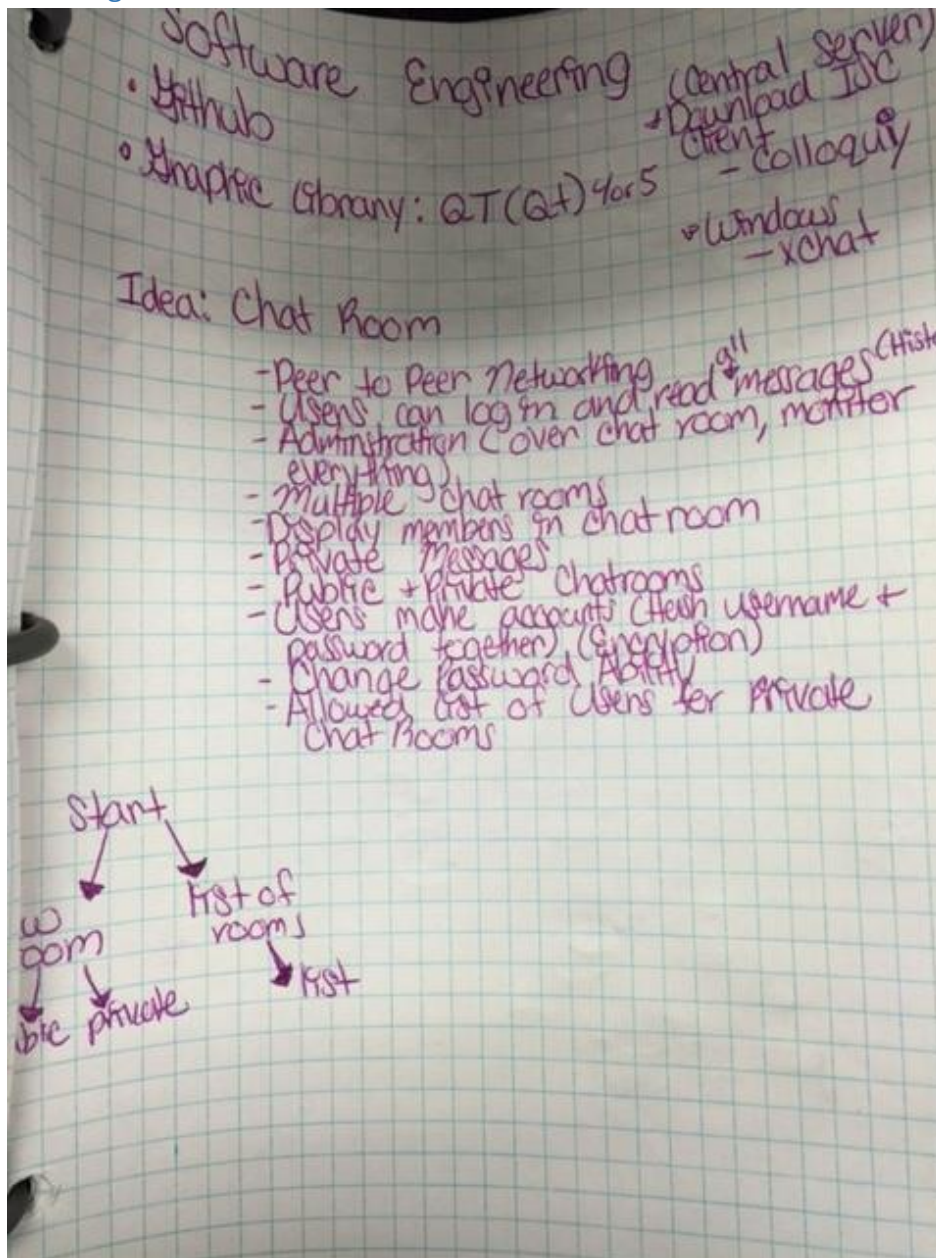 Software Engineering
• Github
• Graphic Library: QT(Qt) 4 or 5
(Central Server)
Download ISC
Client
- Colloquiy
• Windows
- xChat
Idea: Chat Room
- Peer to Peer Networking
- Users can log in and read all messages (Histo
- Adminstration (over chat room, moniter
everything)
- Multiple chat rooms
- Display members in chat room
- Private Messages
- Public + Private Chatrooms
- Users make accounts (Hash username +
password together) (Encryption)
- Change Password Ability
- Allowed List of Users for Private
Chat Rooms
Start
w
oom
list of
rooms
blic private
list